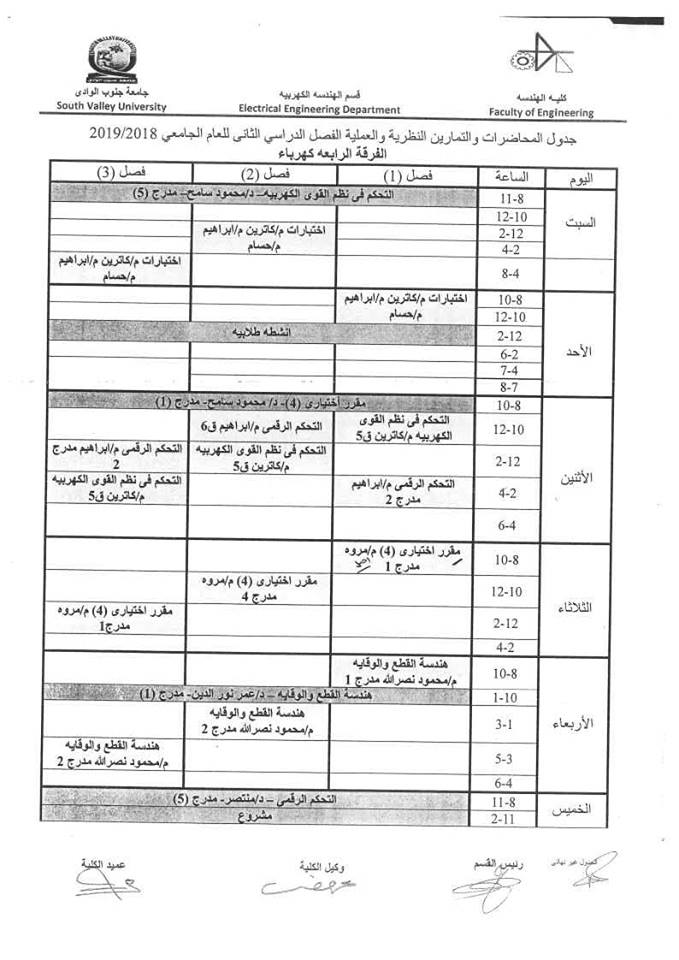 جامعة جنوب الوادى
South Valley University
قسم الهندسه الكهربيه
Electrical Engineering Department
كليه الهندسه
Faculty of Engineering
جدول المحاضرات والتمارين النظرية والعملية الفصل الدراسي الثانى للعام الجامعي 2019/2018
الفرقة الرابعه كهرباء
اليوم الساعة فصل (1) فصل (2) فصل (3)
السبت
11-8 التحكم فى نظم القوى الكهربيه– د/محمود سامح– مدرج (5)
12-10
2-12 اختبارات م/كاترين م/ابراهيم
م/حسام
4-2
8-4 اختبارات م/كاترين م/ابراهيم
م/حسام
الأحد
10-8 اختبارات م/كاترين م/ابراهيم
12-10 م/حسام
2-12 انشطه طلابيه
6-2
7-4
8-7
الأثنين
10-8 مقرر أختيارى (4)- د/ محمود سامح- مدرج (1)
12-10 التحكم فى نظم القوى
الكهربيه م/كاترين ق5
التحكم الرقمى م/ابراهيم ق6
2-12 التحكم فى نظم القوى الكهربيه
م/كاترين ق5
التحكم الرقمى م/ابراهيم مدرج
2
4-2 التحكم الرقمى م/ابراهيم
مدرج 2
التحكم فى نظم القوى الكهربيه
م/كاترين ق5
6-4
الثلاثاء
10-8 مقرر اختيارى (4) م/مروه
مدرج 1
12-10 مقرر اختيارى (4) م/مروه
مدرج 4
2-12 مقرر اختيارى (4) م/مروه
مدرج1
4-2
الأربعاء
10-8 هندسة القطع والوقايه
م/محمود نصرالله مدرج 1
1-10 هندسة القطع والوقايه – د/عمر نور الدين- مدرج (1)
3-1 هندسة القطع والوقايه
م/محمود نصرالله مدرج 2
5-3 هندسة القطع والوقايه
م/محمود نصرالله مدرج 2
6-4
الخميس
11-8 التحكم الرقمى – د/منتصر- مدرج (5)
2-11 مشروع
جدول غير نهائى
رئيس القسم
وكيل الكلية
عميد الكلية